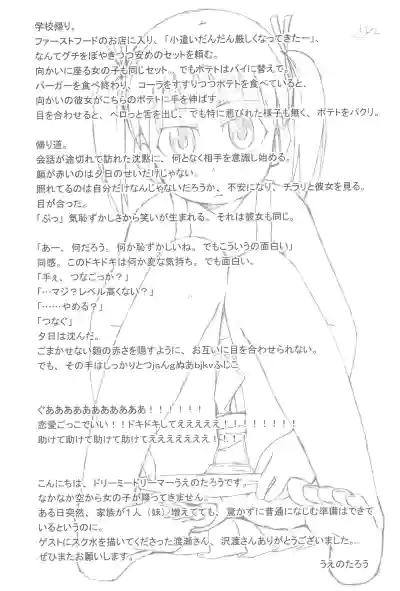 学校帰り。
ファーストフードのお店に入り、「小遣いだんだん厳しくなってきたー」、
なんてグチをぼやきつつ安めのセットを頼む。
向かいに座る女の子も同じセット。でもポテトはパイに替えて。
バーガーを食べ終わり、コーラをすすりつつポテトを食べていると、
向かいの彼女がこちらのポテトに手を伸ばす。
目を合わせると、ペロっと舌を出し、でも特に悪びれた様子も無く、ポテトをパクリ。
帰り道。
会話が途切れて訪れた沈黙に、何となく相手を意識し始める。
顔が赤いのは夕日のせいだけじゃない。
照れてるのは自分だけなんじゃないだろうか、不安になり、チラリと彼女を見る。
目が合った。
「ぷっ」気恥ずかしさから笑いが生まれる。それは彼女も同じ。
「あー、何だろう。何か恥ずかしいね。でもこういうの面白い」
同感。このドキドキは何か変な気持ち。でも面白い。
「手ぇ、つなごっか？」
「…マジ？レベル高くない？」
「……やめる？」
「つなぐ」
夕日は沈んだ。
ごまかせない顔の赤さを隠すように、お互いに目を合わせられない。
でも、その手はしっかりとつjsんgぬあbjkvふじこ
ぐあああああああああああ！！！！！！
恋愛ごっこでいい！！ドキドキしてえええええ！！！！！！！！
助けて助けて助けて助けてえええええええ！！！
こんにちは、ドリーミードリーマーうえのたろうです。
なかなか空から女の子が降ってきません。
ある日突然、家族が1人（妹）増えてても、驚かずに普通になじむ準備はできて
いるというのに。
ゲストにスク水を描いてくださった渡瀬さん、沢渡さんありがとうございました。
ぜひまたお願いします。
うえのたろう